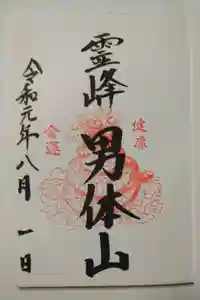 霊峰 男体山
健康
金運
令和元年八月一日